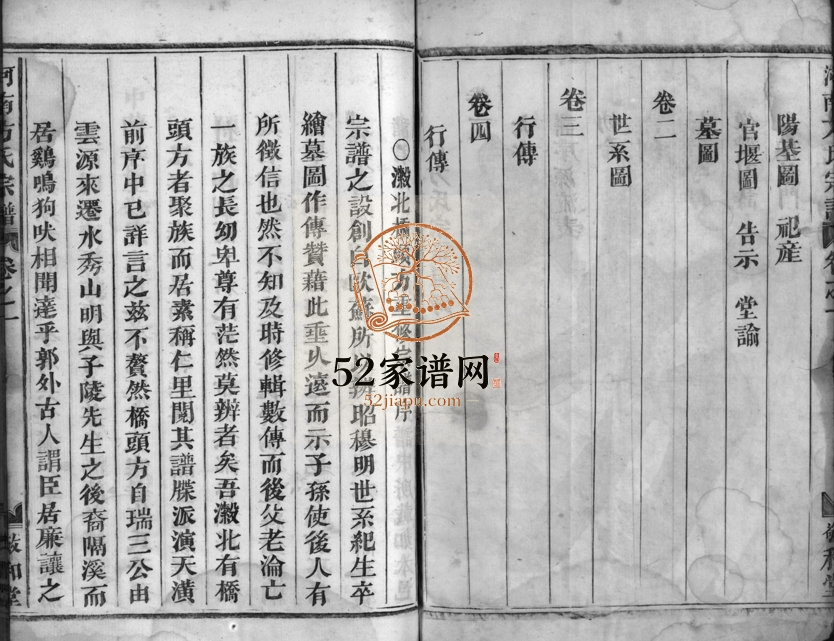 陽基圖 祀產
官堰圖 告示 堂諭
墓圖
卷二
世系圖
卷三
行傳
卷四
行傳
○瀫北橋頭方重修宗譜序
宗譜之設創自歐蘇所以辨昭穆明世系紀生卒
繪墓圖作傳贊藉此垂久遠而示子孫使後人有
所徵信也然不知及時修輯數傳而後父老淪亡
一族之長幼卑尊有茫然莫辨者矣吾瀫北有橋
頭方者聚族而居素稱仁里閱其譜牒派演天潢
前序中已詳言之茲不贅然橋頭方自瑞三公由
雲源來遷水秀山明與子陵先生之後裔隔溪而
居鷄鳴狗吠相聞達乎郭外古人謂臣居廉讓之
河南方氏宗譜 卷之一
敘和堂
52家谱网
52jiapu.com